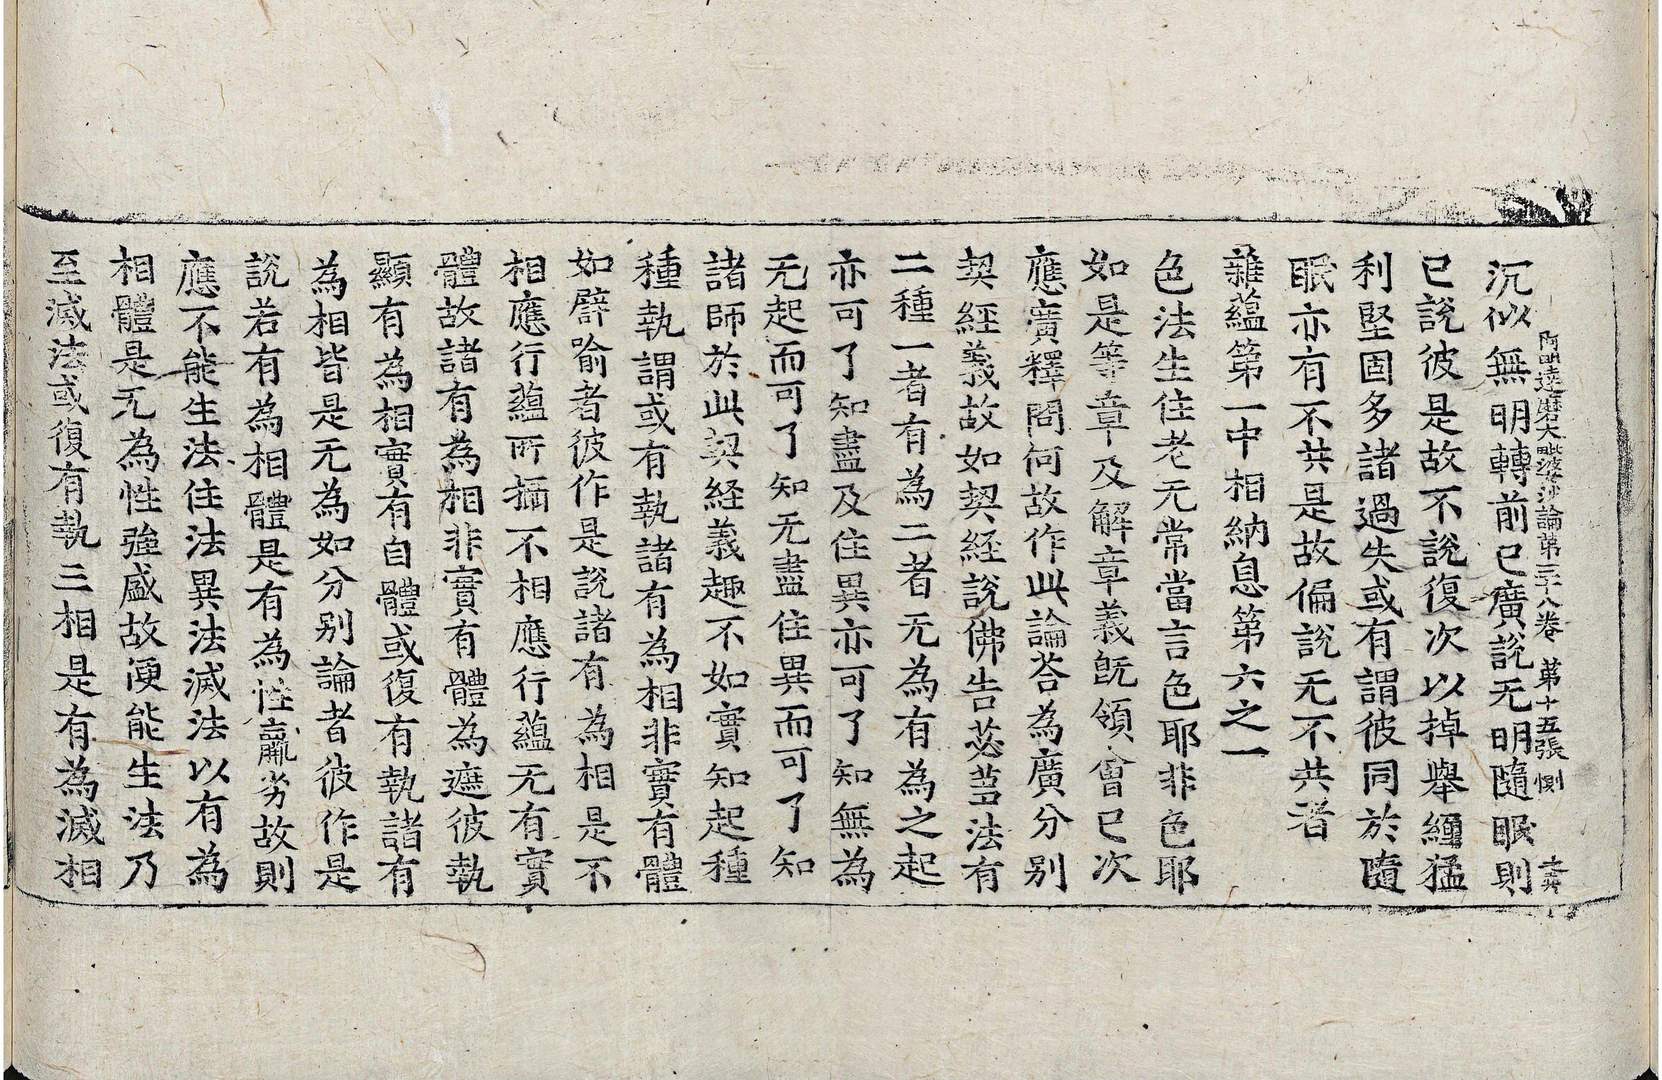 阿毗達磨大毗婆沙論第三十八卷 第十五張 惻
沉似無明轉前已廣說无明隨眠則
已說彼是故不說復次以掉舉纏猛
利堅固多諸過失或有謂彼同於隨
眠亦有不共是故偏說无不共者
雜蘊第一中相納息第六之一
色法生住老无常當言色耶非色耶
如是等章及解章義旣領會已次
應廣釋問何故作此論荅為廣分别
契經義故如契經說佛告苾芻法有
二種一者有為二者无為有為之起
亦可了知盡及住異亦可了知無為
无起而可了知无盡住異而可了知
諸師於此契経義趣不如實知起種
種執謂或有執諸有為相非實有體
如譬喻者彼作是說諸有為相是不
相應行蘊所攝不相應行蘊无有實
體故諸有為相非實有體為遮彼執
顯有為相實有自體或復有執諸有
為相皆是无為如分别論者彼作是
說若有為相體是有為性羸劣故則
應不能生法住法異法滅法以有為
相體是无為性強盛故便能生法乃
至滅法或復有執三相是有為滅相